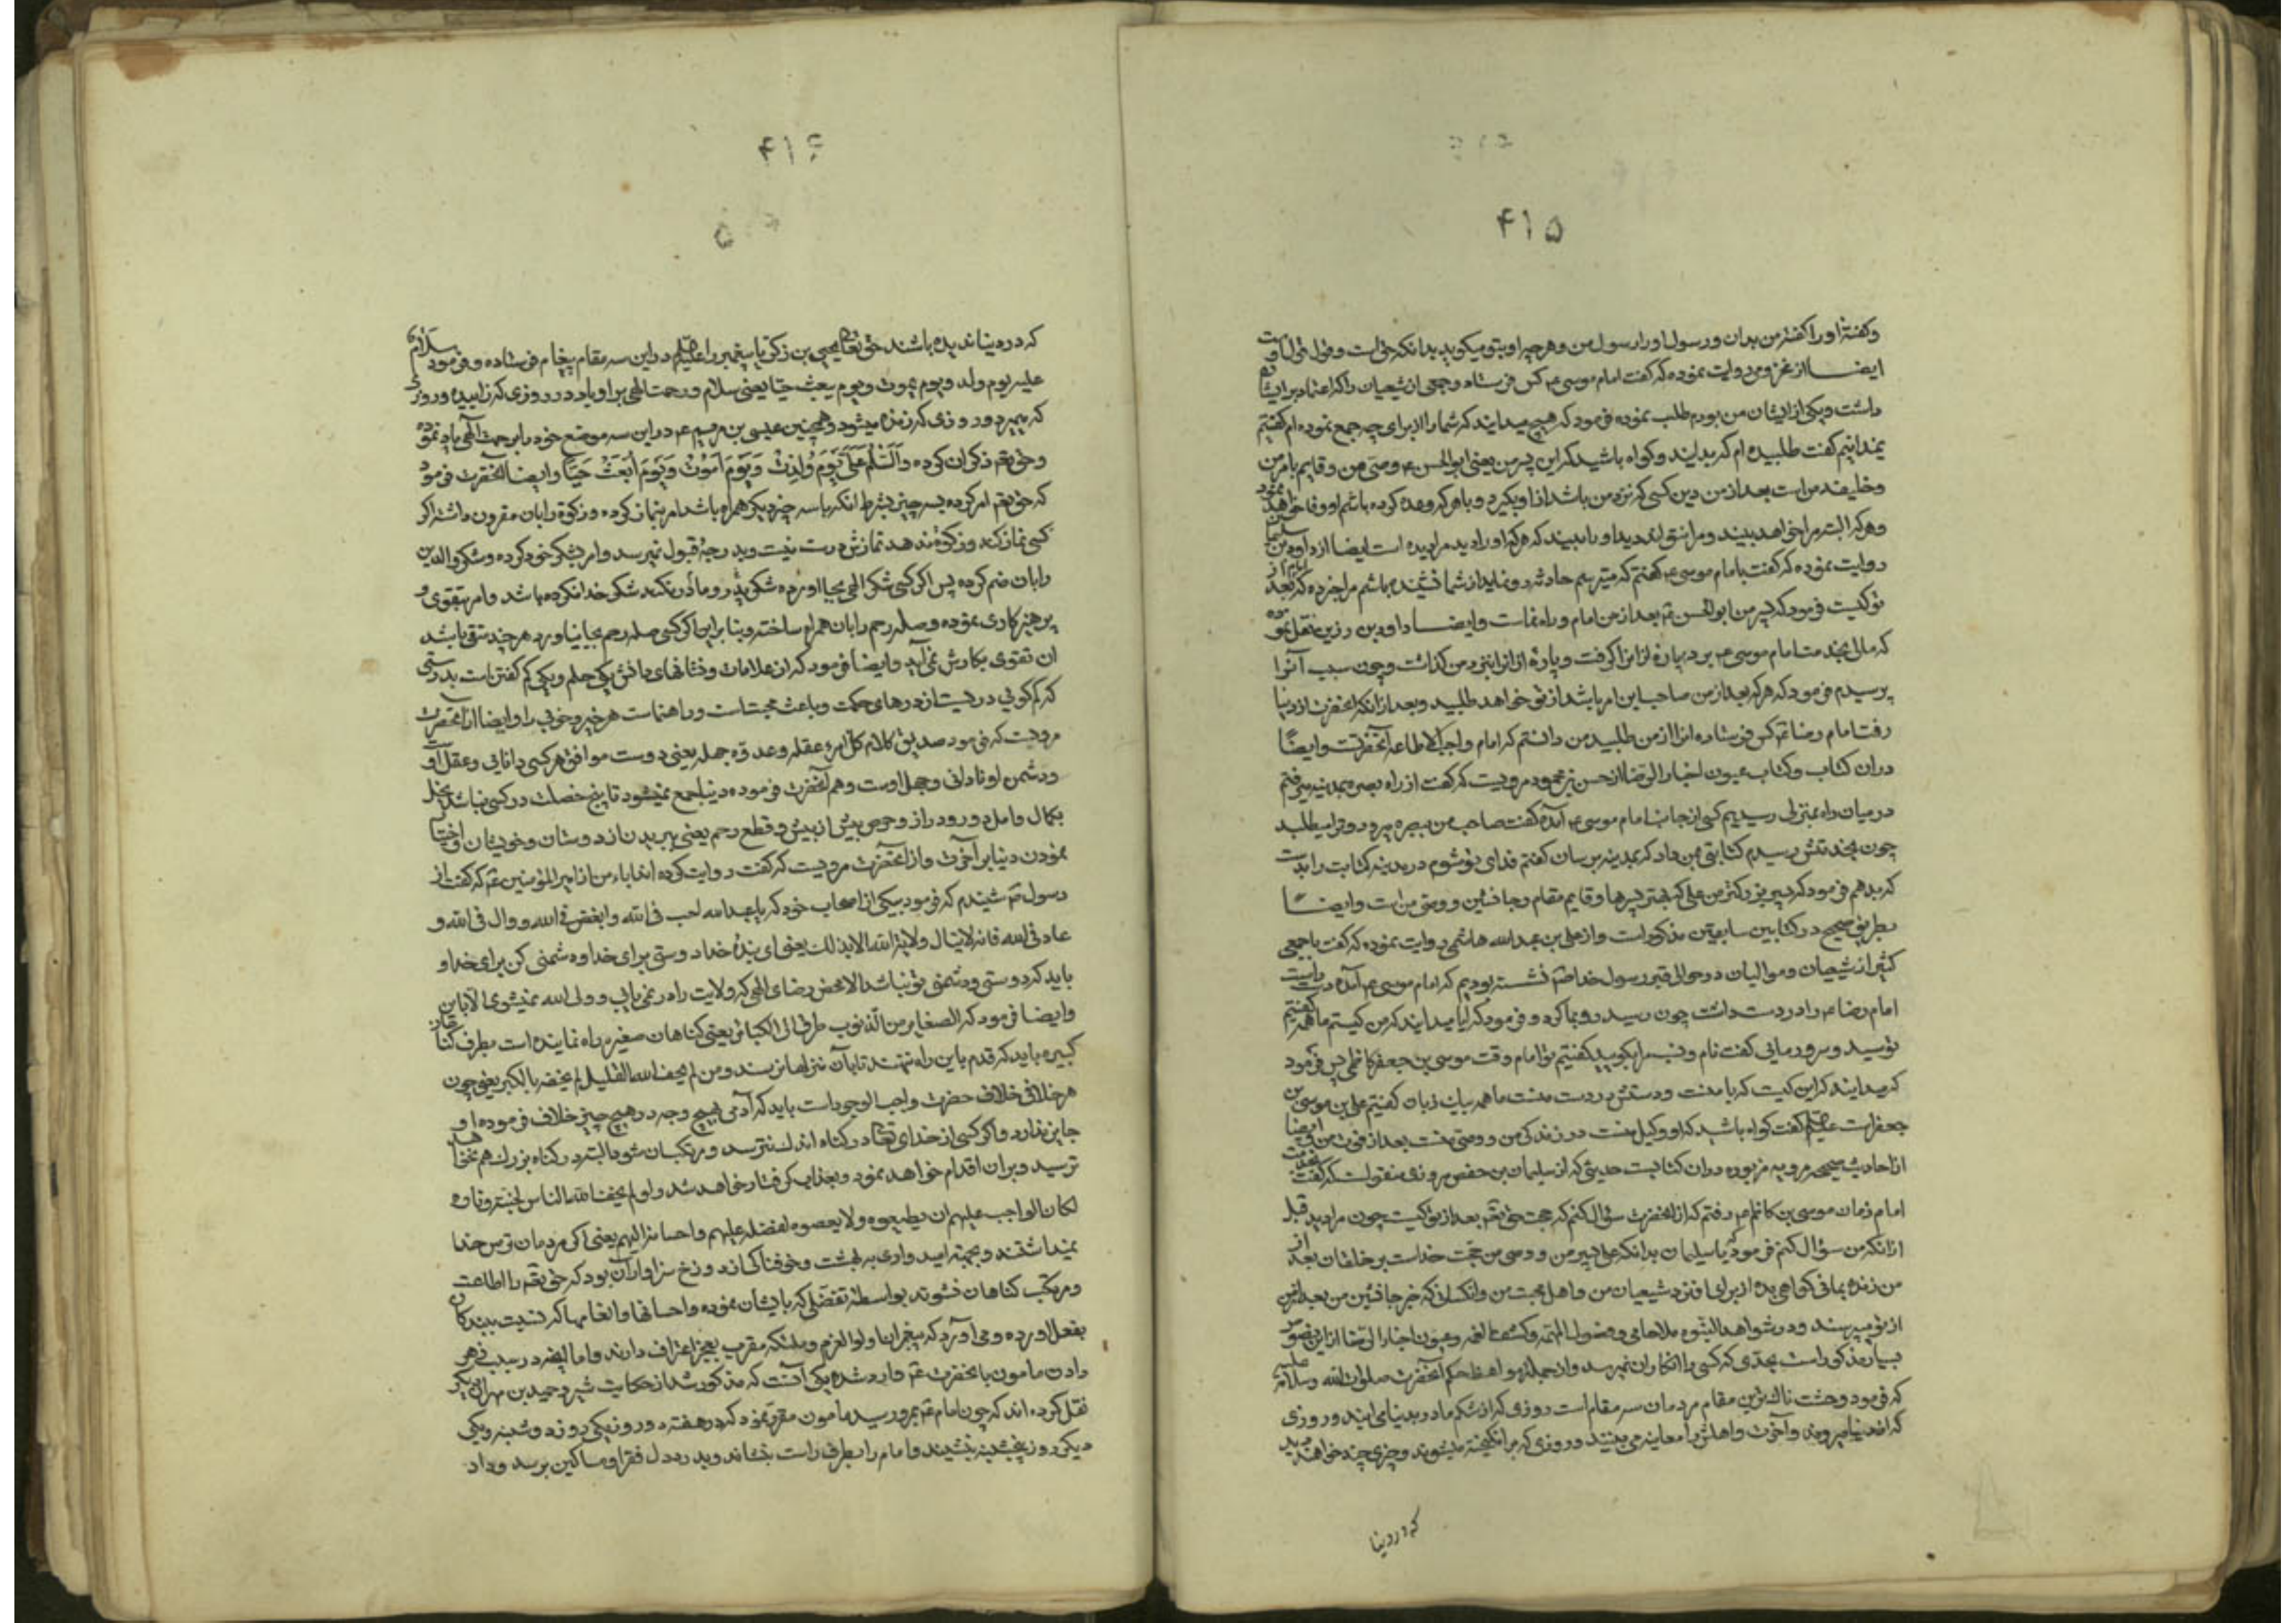 ۴۱۵
و گفتهٔ او را گفتهٔ من بدان و رسول او را رسول من و هر چه او بتو میگوید بدانکه حق است و قول قول اوست
ایضا از مخزومی روایت نموده که گفت امام موسی ع کس فرستاده و جمعی از شیعیان را که اعتماد بر ایشان
داشت و یکی از ایشان من بودم طلب نموده فرمود که هیچ میدانید که شما را از برای چه جمع نموده ام گفتیم
نمیدانیم گفت طلبیده ام که بدانید و گواه باشید که این پسر من یعنی ابوالحسن ع وصی من و قایم بامر من
و خلیفه من است بعد از من دین کسی که نزد من باشد از او بگیرد و با هر که وعده کرده باشم او وفا خواهد نمود
و هر که البته مرا خواهد ببیند و مرا نتواند دید او را ببیند که هر که او را دید مرا دیده است ایضا از داود بن سلیمان
روایت نموده که گفت بامام موسی ع گفتم که میترسم حادثه رو نماید از شما نشنیده باشم مرا خبر ده که بعد از تو امام
کیست فرمود که پسر من ابوالحسن ع بعد از من امام و راه نماست و ایضا داود بن رزین نقل نموده
که مالی بخدمت امام موسی ع بردم پارهٔ از انرا گرفت و پارهٔ از انرا نزد من گذاشت و چون سبب آنرا
پرسیدم فرمود که هر که بعد از من صاحب این امر باشد از تو خواهد طلبید و بعد از آنکه آنحضرت از دنیا
رفت امام رضا ع کس فرستاده انرا از من طلبید من دانستم که امام واجب الاطاعه آنحضرتست و ایضًا
در ان کتاب و کتاب عیون اخبار الرضا از حسن بن محمود مرویست که گفت از راه بصره بمدینه میرفتم
در میان راه بمنزلی رسیدیم کسی از جانب امام موسی ع آمده گفت صاحب من ببصره میرود و ترا میطلبد
چون بخدمتش رسیدم کتابتی بمن داد که بمدینه برسان گفتم فدای تو شوم در مدینه کتابت را بدست
که بدهم فرمود که به پسر بزرگتر من علی که بهتر پسرها و قایم مقام و جانشین و وصی من است و ایضا
بطریق صحیح در کتابین سابقین مذکور است و از علی بن عبدالله هاشمی روایت نموده که گفت با جمعی
کثیر از شیعیان و موالیان در حوالی قبر رسول خدا ص نشسته بودیم که امام موسی ع آمده دست
امام رضا ع را در دست داشت چون رسید رو بما کرد و فرمود که آیا میدانید که من کیستم ما همه گفتیم
تو سید و سرور مایی گفت نام و نسب مرا بگویید گفتیم تو امام وقت موسی بن جعفر کاظمی پس فرمود
که میدانید که این کیست که با منست و دستش در دست منست ما همه بیک زبان گفتیم علی بن موسی بن
جعفر است علیهم گفت گواه باشید که او وکیل منست در زندگی من و وصی منست بعد از فوت من و ایضا
از احادیث صحیحه مرویه مزبوره در ان کتابست حدیثی که از سلیمان بن حفص مروزی منقولست که گفت بخدمت
امام زمان موسی بن کاظم ع رفتم که از آنحضرت سؤال کنم که حجت حق تعم بعد از تو کیست چون مرا دید قبل
از انکه من سؤال کنم فرمود یا سلیمان بدانکه علی پسر من و وصی من حجّت خداست بر خلقان بعد از
من زنده بمانی گواهی بده از برای او نزد شیعیان من و اهل محبت من و انکسانی که خبر جانشین من بعد از من
از تو میپرسند و در شواهد النبوه ملا جامی و فصول المهمه و کشف الغمه و عیون اخبار الرضا از این نصوص
بسیار مذکور است بحدّی که کسی را انکار ان نمیرسد و از جمله مواعظ حکم آنحضرت صلوات الله و سلامه علیه
که فرمود وحشت ناکترین مقام مردمان سه مقام است روزی که از شکم مادر بدنیا می ایند و روزی
که از دنیا میروند و آخرت و اهلش را معاینه می بینند و روزی که بر انگیخته میشوند و چیزی چند خواهند دید
که در دنیا
۴۱۶
که در دنیا ندیده باشند حق تعالی یحیی بن زکریا پیغمبر را علیهم در این سه مقام پیغام فرستاده و فرمود سلام
علیه یوم ولد و یوم یموت و یوم یبعث حیّا یعنی سلام و رحمت الهی بر او باد در روزی که زاییده و روزی
که بمیرد و روزی که زنده میشود و همچنین عیسی بن مریم ع در این سه موضع خود را برحمت الهی یاد نموده
و حق تعم ذکر ان کرده وَ السَّلٰمُ عَلَیَّ یَوْمَ وُلِدْتُ وَ یَوْمَ اَمُوْتُ وَ یَوْمَ اُبْعَثُ حَیًّا و ایضا آنحضرت فرمود
که حق تعم امر کرده بسه چیز بشرط انکه با سه چیز دیگر همراه باشد امر بنماز کرده و زکوة را بان مقرون داشته اگر
کسی نماز کند و زکوة ندهد نمازش درست نیست و بدرجهٔ قبول نمیرسد و امر بشکر خود کرده و شکر والدین
را بان ضم کرده پس اگر کسی شکر الهی بجا آورده شکر پدر و مادر نکند شکر خدا نکرده باشد و امر بتقوی و
پرهیز کاری نموده و صله رحم را بان همراه ساخته و بنا بر این اگر کسی صله رحم بجا نیاورد هر چند متقی باشد
ان تقوی بکارش نمی آید و ایضا فرمود که از علامات و نشانهای دانش یکی حلم و یکی کم گفتن است بدرستی
که کم گویی دریست از درهای حکمت و باعث محبت است و راهنماست هر خیر و خوبی را و ایضا از آنحضرت
مرویست که فرمود صدیق کلام کل امرء عقله و عدوّه جهله یعنی دوست موافق هر کسی دانایی و عقل اوست
و دشمن او نادانی و جهل اوست و هم آنحضرت فرموده دنیا جمع نمیشود تا پنج خصلت در کسی نباشد بخل
بکمال و امل دور و دراز و حرص بیش از بیش و قطع رحم یعنی بریدن از دوستان و خویشان و اختیار
نمودن دنیا بر آخرت و از آنحضرت مرویست که گفت روایت کرده اند اباء من از امیر المؤمنین ع که گفت از
رسول ص شنیدم که فرمود بیکی از اصحاب خود که یا عبد الله احب فی الله و ابغض فی الله و وال فی الله و
عاد فی الله فانه لاینال ولایة الله الا بذلک یعنی ای بندهٔ خدا دوستی برای خدا و دشمنی کن برای خدا و
باید که دوستی و دشمنی تو نباشد الا محض رضای الهی که ولایت را در نمی یابی و ولی الله نمیشوی الا باین
و ایضا فرمود که الصغایر من الذنوب طرق الی الکبائر یعنی گناهان صغیره راه نماینده است بطرف گناهان
کبیره باید که قدم باین راه ننهند تا بآن منزلها نرسند و من لم یخف الله القلیل لم یخفه بالکبر یعنی چون
هر خلافی خلاف حضرت واجب الوجود است باید که آدمی بهیچ وجه در هیچ چیز خلاف فرموده او
جایز ندارد و اگر کسی از خدای تعالی در گناه اندک نترسد و مرتکب ان شود البته در گناه بزرگ هم نخواهد
ترسید و بر ان اقدام خواهد نمود و بعذاب گرفتار خواهد شد و لو لم یخف الله الناس لجنته و ناره
لکان الواجب علیهم ان یطیعوه و لا یعصوه لفضله علیهم و احسانه الیهم یعنی اگر مردمان ترس خدا
نمیداشتند و بجهة امیدواری بهشت و خوفناکی از دوزخ سزاوار آن بود که حق تعم را اطاعت
و مرتکب گناهان نشوند بواسطهٔ تفضلی که بایشان نموده و احسانها و انعامها که نسبت ببندگان
بفعل اورده و می آورد که پیغمبران اولوا العزم و ملئکه مقرب بعجز اعتراف دارند و اما البغض در سبب زهر
دادن مامون بانحضرت ع وارد شده یکی آنست که مذکور شد از حکایت شیر و حمید بن مهران دیگر
نقل کرده اند که چون امام ع بمرو رسید مامون مقرر نمود که در هفته دو روز یکی روز دوشنبه و یکی
دیگر روز پنجشنبه بنشیند و امام را بطرف راست بنشاند و بدرد دل فقرا و مساکین برسد و داد